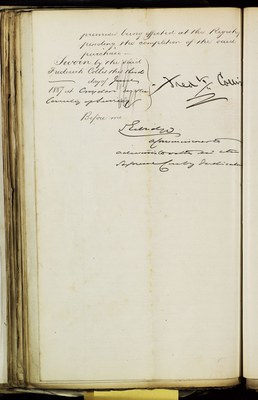 premises being effected at the Registry
pending the completion of the said
purchase.
Sworn by the said
Frederick Collis this third
day of January
1887 at Croydon in the
County of Surrey
Fredk Collis
Before me
a Commissioner to
administer oaths in the
Supreme Court of Judicature